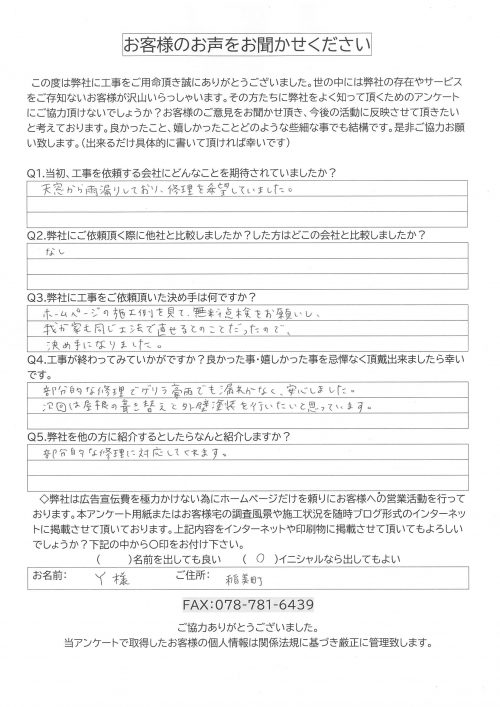 お客様のお声をお聞かせください
この度は弊社に工事をご用命頂き誠にありがとうございました。世の中には弊社の存在やサービス
をご存知ないお客様が沢山いらっしゃいます。その方たちに弊社をよく知って頂くためのアンケート
にご協力頂けないでしょうか？お客様のご意見をお聞かせ頂き、今後の活動に反映させて頂きたい
と考えております。良かったこと、嬉しかったことどのような些細な事でも結構です。是非ご協力お願
い致します。（出来るだけ具体的に書いて頂ければ幸いです）
Q1.当初、工事を依頼する会社にどんなことを期待されていましたか？
天窓から雨漏りしており、修理を希望していました。
Q2.弊社にご依頼頂く際に他社と比較しましたか？した方はどこの会社と比較しましたか？
なし
Q3.弊社に工事をご依頼頂いた決め手は何ですか？
ホームページの施工例を見て、無料点検をお願いし、
我が家も同じ工法で直せるとのことだったので、
決め手になりました。
Q4.工事が終わってみていかがですか？良かった事・嬉しかった事を忌憚なく頂戴出来ましたら幸い
です。
部分的な修理でゲリラ豪雨でも漏れがなく、安心しました。
次回は屋根の葺き替えと外壁塗装を行いたいと思っています。
Q5.弊社を他の方に紹介するとしたらなんと紹介しますか？
部分的な修理に対応してくれます。
◇弊社は広告宣伝費を極力かけない為にホームページだけを頼りにお客様への営業活動を行って
おります。本アンケート用紙またはお客様宅の調査風景や施工状況を随時ブログ形式のインターネッ
トに掲載させて頂いております。上記内容をインターネットや印刷物に掲載させて頂いてもよろしい
でしょうか？下記の中から〇印をお付け下さい。
（　　）名前を出しても良い　（ ○ ）イニシャルなら出してもよい
お名前： Y 様　ご住所： 稲美町
FAX：078-781-6439
ご協力ありがとうございました。
当アンケートで取得したお客様の個人情報は関係法規に基づき厳正に管理致します。